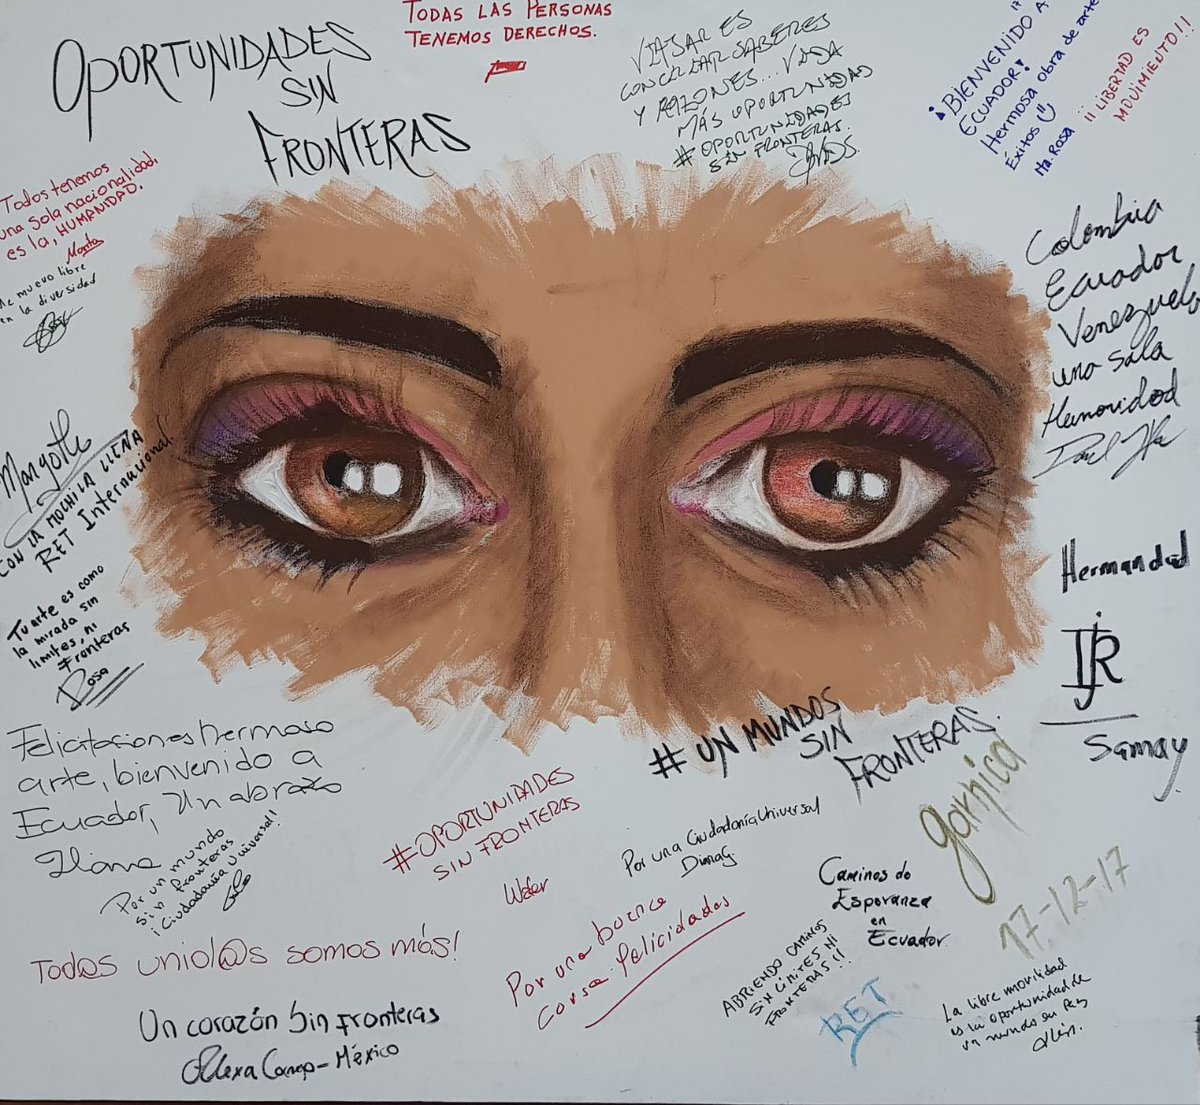 OPORTUNIDADES
SIN
FRONTERAS
TODAS LAS PERSONAS
TENEMOS DERECHOS.
VIAJAR ES
CONCILIAR SABERES
Y RAZONES... VIVA
MÁS OPORTUNIDAD
#OPORTUNIDADES
SIN FRONTERAS.
¡BIENVENIDO A
ECUADOR!
Hermosa obra de arte
Éxitos
Ma. Rosa
¡¡LIBERTAD ES
MOVIMIENTO!!!
Todos tenemos
una sola nacionalidad,
es la, HUMANIDAD.
Me muevo libre
en la diversidad
Colombia
Ecuador
Venezuela
una sola
Humanidad
Margoth
CON LA MOCHILA LLENA
RET Internacional.
Tu arte es como
la mirada sin
limites, ni
fronteras
Rosa
Hermandad
IJR
Samay
# UN MUNDOS
SIN
FRONTERAS.
Felicitaciones hermoso
arte, bienvenido a
Ecuador, Un abrazo
Por un mundo
sin fronteras
¡Ciudadanía Universal!
#OPORTUNIDADES
SIN FRONTERAS
Por una Ciudadanía Universal
garnica
17-12-17
Caminos de
Esperanza
en
Ecuador
Tod@s unid@s somos más!
Por una buena
causa felicidades
ABRIENDO CAMINOS
SIN LIMITES NI
FRONTERAS!!
RET
La libre movilidad
es la oportunidad de
un mundo en Paz
Un corazón Sin fronteras
Alexa - México